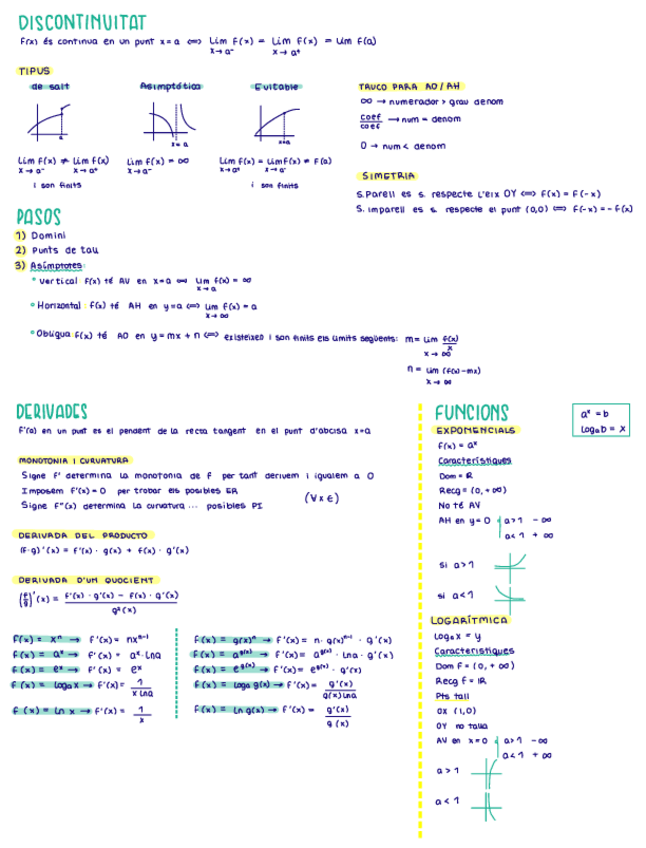 DISCONTINUITAT
F(x) és contínua en un punt x=a ⟺ Lim F(x) = Lim F(x) = Lim F(a)
x→a⁻ x→a⁺
TIPUS
de salt
Asimptòtica
Evitable
a
x=a
x=a
Lim F(x) ≠ Lim F(x)
x→a⁻ x→a⁺
i son finits
Lim F(x) = ∞
x→a⁻
Lim F(x) = Lim F(x) ≠ F(a)
x→a⁺ x→a⁻
i son finits
TRUCO PARA AO/AH
∞ → numerador > grau denom
coef/coef → num = denom
0 → num < denom
SIMETRIA
S.Parell es s. respecte l'eix OY ⟺ F(x) = F(-x)
S. imparell es s. respecte el punt (0,0) ⟺ F(-x) = -F(x)
PASOS
1) Domini
2) Punts de tall
3) Asímptotes:
• Vertical F(x) té AV en x=a ⟺ Lim F(x) = ∞
x→a
• Horizontal: F(x) té AH en y=a ⟺ Lim F(x) = a
x→∞
• Obliqua: F(x) té AO en y=mx+n ⟺ existeixen i son finits els límits següents: m= Lim F(x)/x
x→∞
n = Lim (F(x)-mx)
x→∞
DERIVADES
F'(a) en un punt es el pendent de la recta tangent en el punt d'abcisa x=a
MONOTONIA I CURVATURA
Signe F' determina la monotonia de F per tant derivem i igualem a 0
Imposem F'(x)=0 per trobar els posibles ER
(∀x∈)
Signe F''(x) determina la curvatura... posibles PI
DERIVADA DEL PRODUCTO
(F·g)'(x) = F'(x)·g(x) + F(x)·g'(x)
DERIVADA D'UN QUOCIENT
(F/g)'(x) = F'(x)·g(x) - F(x)·g'(x) / g²(x)
F(x) = xⁿ → F'(x) = nxⁿ⁻¹
F(x) = aˣ → F'(x) = aˣ·Lna
F(x) = eˣ → F'(x) = eˣ
F(x) = logₐx → F'(x) = 1/xLna
F(x) = Ln x → F'(x) = 1/x
F(x) = g(x)ⁿ → F'(x) = n·g(x)ⁿ⁻¹·g'(x)
F(x) = a^g(x) → F'(x) = a^g(x)·Lna·g'(x)
F(x) = e^g(x) → F'(x) = e^g(x)·g'(x)
F(x) = logₐ g(x) → F'(x) = g'(x)/g(x)Lna
F(x) = Ln g(x) → F'(x) = g'(x)/g(x)
FUNCIONS
aˣ = b
Logₐb = x
EXPONENCIALS
F(x) = aˣ
Característiques
Dom = ℝ
Recg = (0,+∞)
No té AV
AH en y=0 a>1 -∞
a<1 +∞
si a>1
si a<1
LOGARÍTMICA
Logₐx = y
Característiques
Dom F = (0,+∞)
Recg F = ℝ
Pts tall
OX (1,0)
OY no talla
AV en x=0 a>1 -∞
a<1 +∞
a>1
a<1